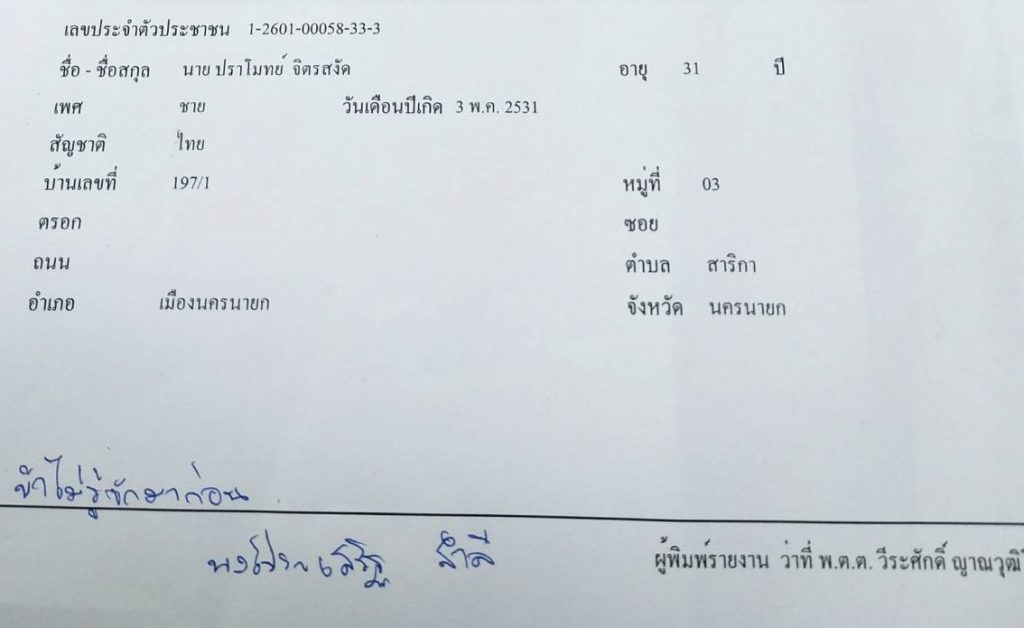 เลขประจำตัวประชาชน 1-2601-00058-33-3
ชื่อ - ชื่อสกุล นาย ปราโมทย์ จิตรสงัด อายุ 31 ปี
เพศ ชาย วันเดือนปีเกิด 3 พ.ค. 2531
สัญชาติ ไทย
บ้านเลขที่ 197/1 หมู่ที่ 03
ตรอก ซอย
ถนน ตำบล สาริกา
อำเภอ เมืองนครนายก จังหวัด นครนายก
ข้าไม่รู้จักมาก่อน
ผู้พิมพ์รายงาน ว่าที่ พ.ต.ต. วีระศักดิ์ ญาณวุฒิ